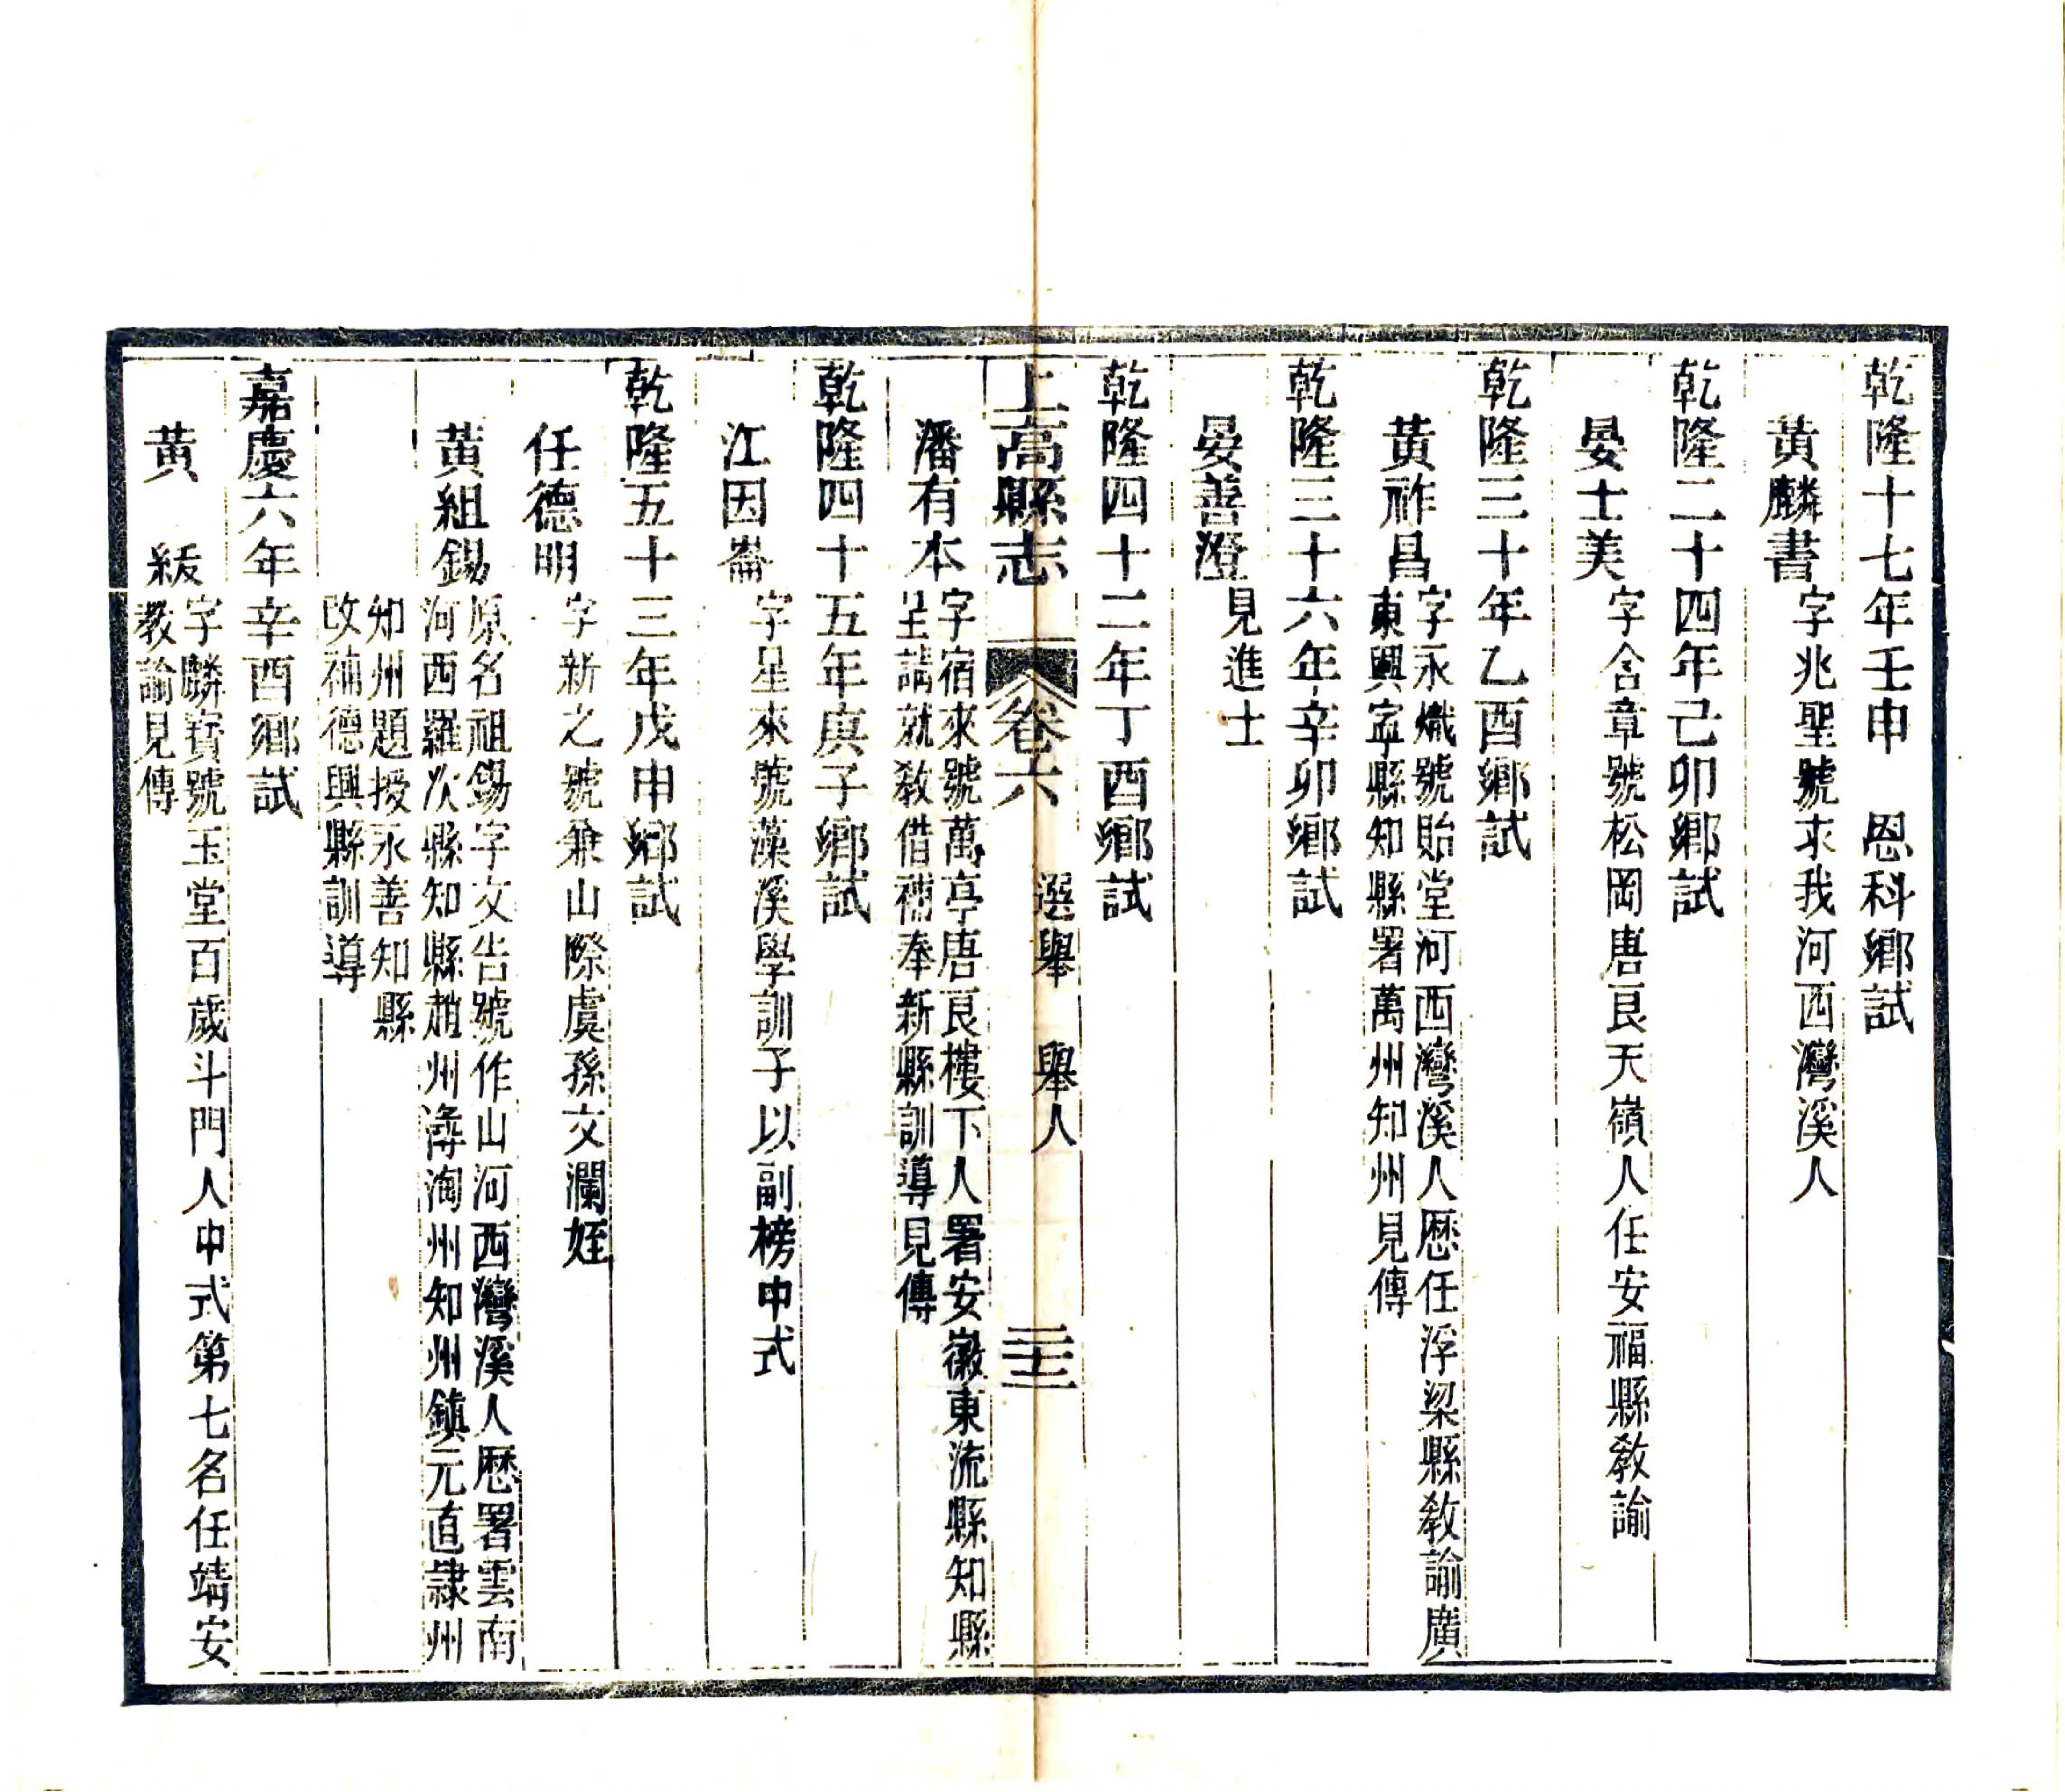 乾隆十七年壬申　恩科鄉試
黃麟書字兆聖號求我河西灣溪人
乾隆二十四年己卯鄉試
晏士美字含章號松岡唐良天嶺人任安福縣敎諭
乾隆三十年乙酉鄉試
黃祚昌字永熾號貽堂河西灣溪人歷任浮梁縣敎諭廣
東興寧縣知縣署萬州知州見傳
乾隆三十六年辛卯鄉試
晏善澄見進士
乾隆四十二年丁酉鄉試
上高縣志　卷六　選舉　舉人　二十三
潘有本字宿來號萬亭唐良樓下人署安徽東流縣知縣
呈請就敎借補奉新縣訓導見傳
乾隆四十五年庚子鄉試
江因崙字星來號藻溪學訓子以副榜中式
乾隆五十三年戊申鄉試
任德明字新之號兼山際虞孫文瀾姪
黃組錫原名祖錫字文吿號作山河西灣溪人歷署雲南
河西羅次縣知縣趙州㵋洵州知州鎮元直隸州
知州題授永善知縣
改補德興縣訓導
嘉慶六年辛酉鄉試
黃　綏字麟寶號玉堂百歲斗門人中式第七名任靖安
教諭見傳